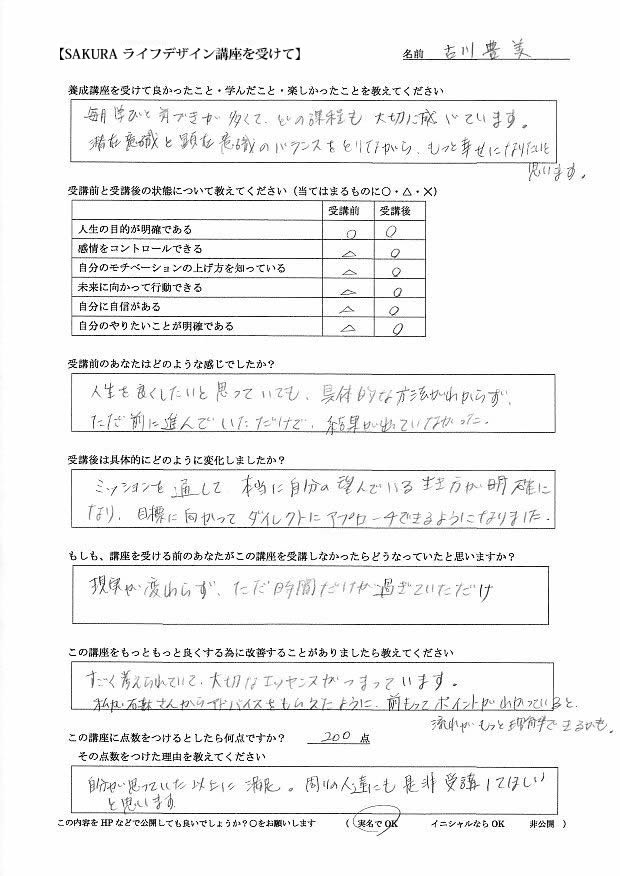 【SAKURA ライフデザイン講座を受けて】 名前 古川 豊美
養成講座を受けて良かったこと・学んだこと・楽しかったことを教えてください
毎月学びと気づきが多くて、どの課程も大切に感じています。
潜在意識と顕在意識のバランスをとりながら、もっと幸せになりたいと
思います。
受講前と受講後の状態について教えてください（当てはまるものに○・△・×）
受講前 受講後
人生の目的が明確である ○ ○
感情をコントロールできる △ ○
自分のモチベーションの上げ方を知っている △ ○
未来に向かって行動できる △ ○
自分に自信がある △ ○
自分のやりたいことが明確である △ ○
受講前のあなたはどのような感じでしたか？
人生を良くしたいと思っていても、具体的な方法がわからず、
ただ前に進んでいただけで、結果が出ていなかった。
受講後は具体的にどのように変化しましたか？
ミッションを通して、本当に自分の望んでいる生き方が明確に
なり、目標に向かってダイレクトにアプローチできるようになりました。
もしも、講座を受ける前のあなたがこの講座を受講しなかったらどうなっていたと思いますか？
現実が変わらず、ただ時間だけが過ぎていただけ
この講座をもっともっと良くする為に改善することがありましたら教えてください
すごく考えられていて、大切なエッセンスがつまっています。
私が さんからアドバイスをもらえたように、前もってポイントがわかっていると、
流れがもっと理解できるかも。
この講座に点数をつけるとしたら何点ですか？ 200 点
その点数をつけた理由を教えてください
自分が思っていた以上に満足。周りの人達にも是非受講してほしい
と思います
この内容を HP などで公開しても良いでしょうか？○をお願いします （ 実名で OK イニシャルなら OK 非公開 ）